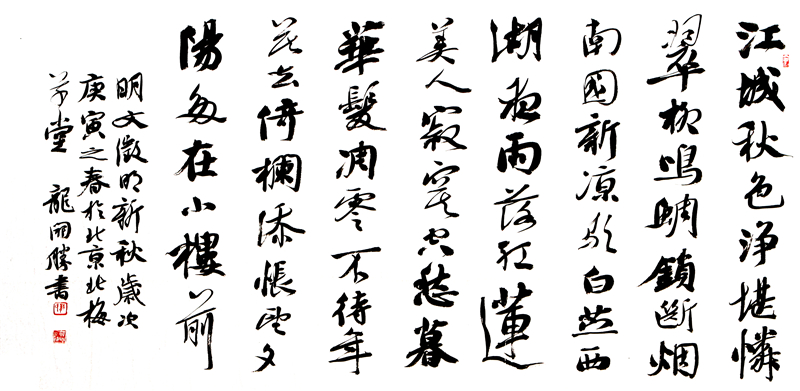 江城秋色浄堪憐
翠柳鳴蜩鎖斷烟
南國新凉歌白苎西
湖夜雨落紅蓮
美人寂寞空愁暮
華髮凋零不待年
莫去倚欄添悵望夕
陽多在小樓前
明文徵明新秋歲次
庚寅之春於北京北梅
堂 龍開勝書